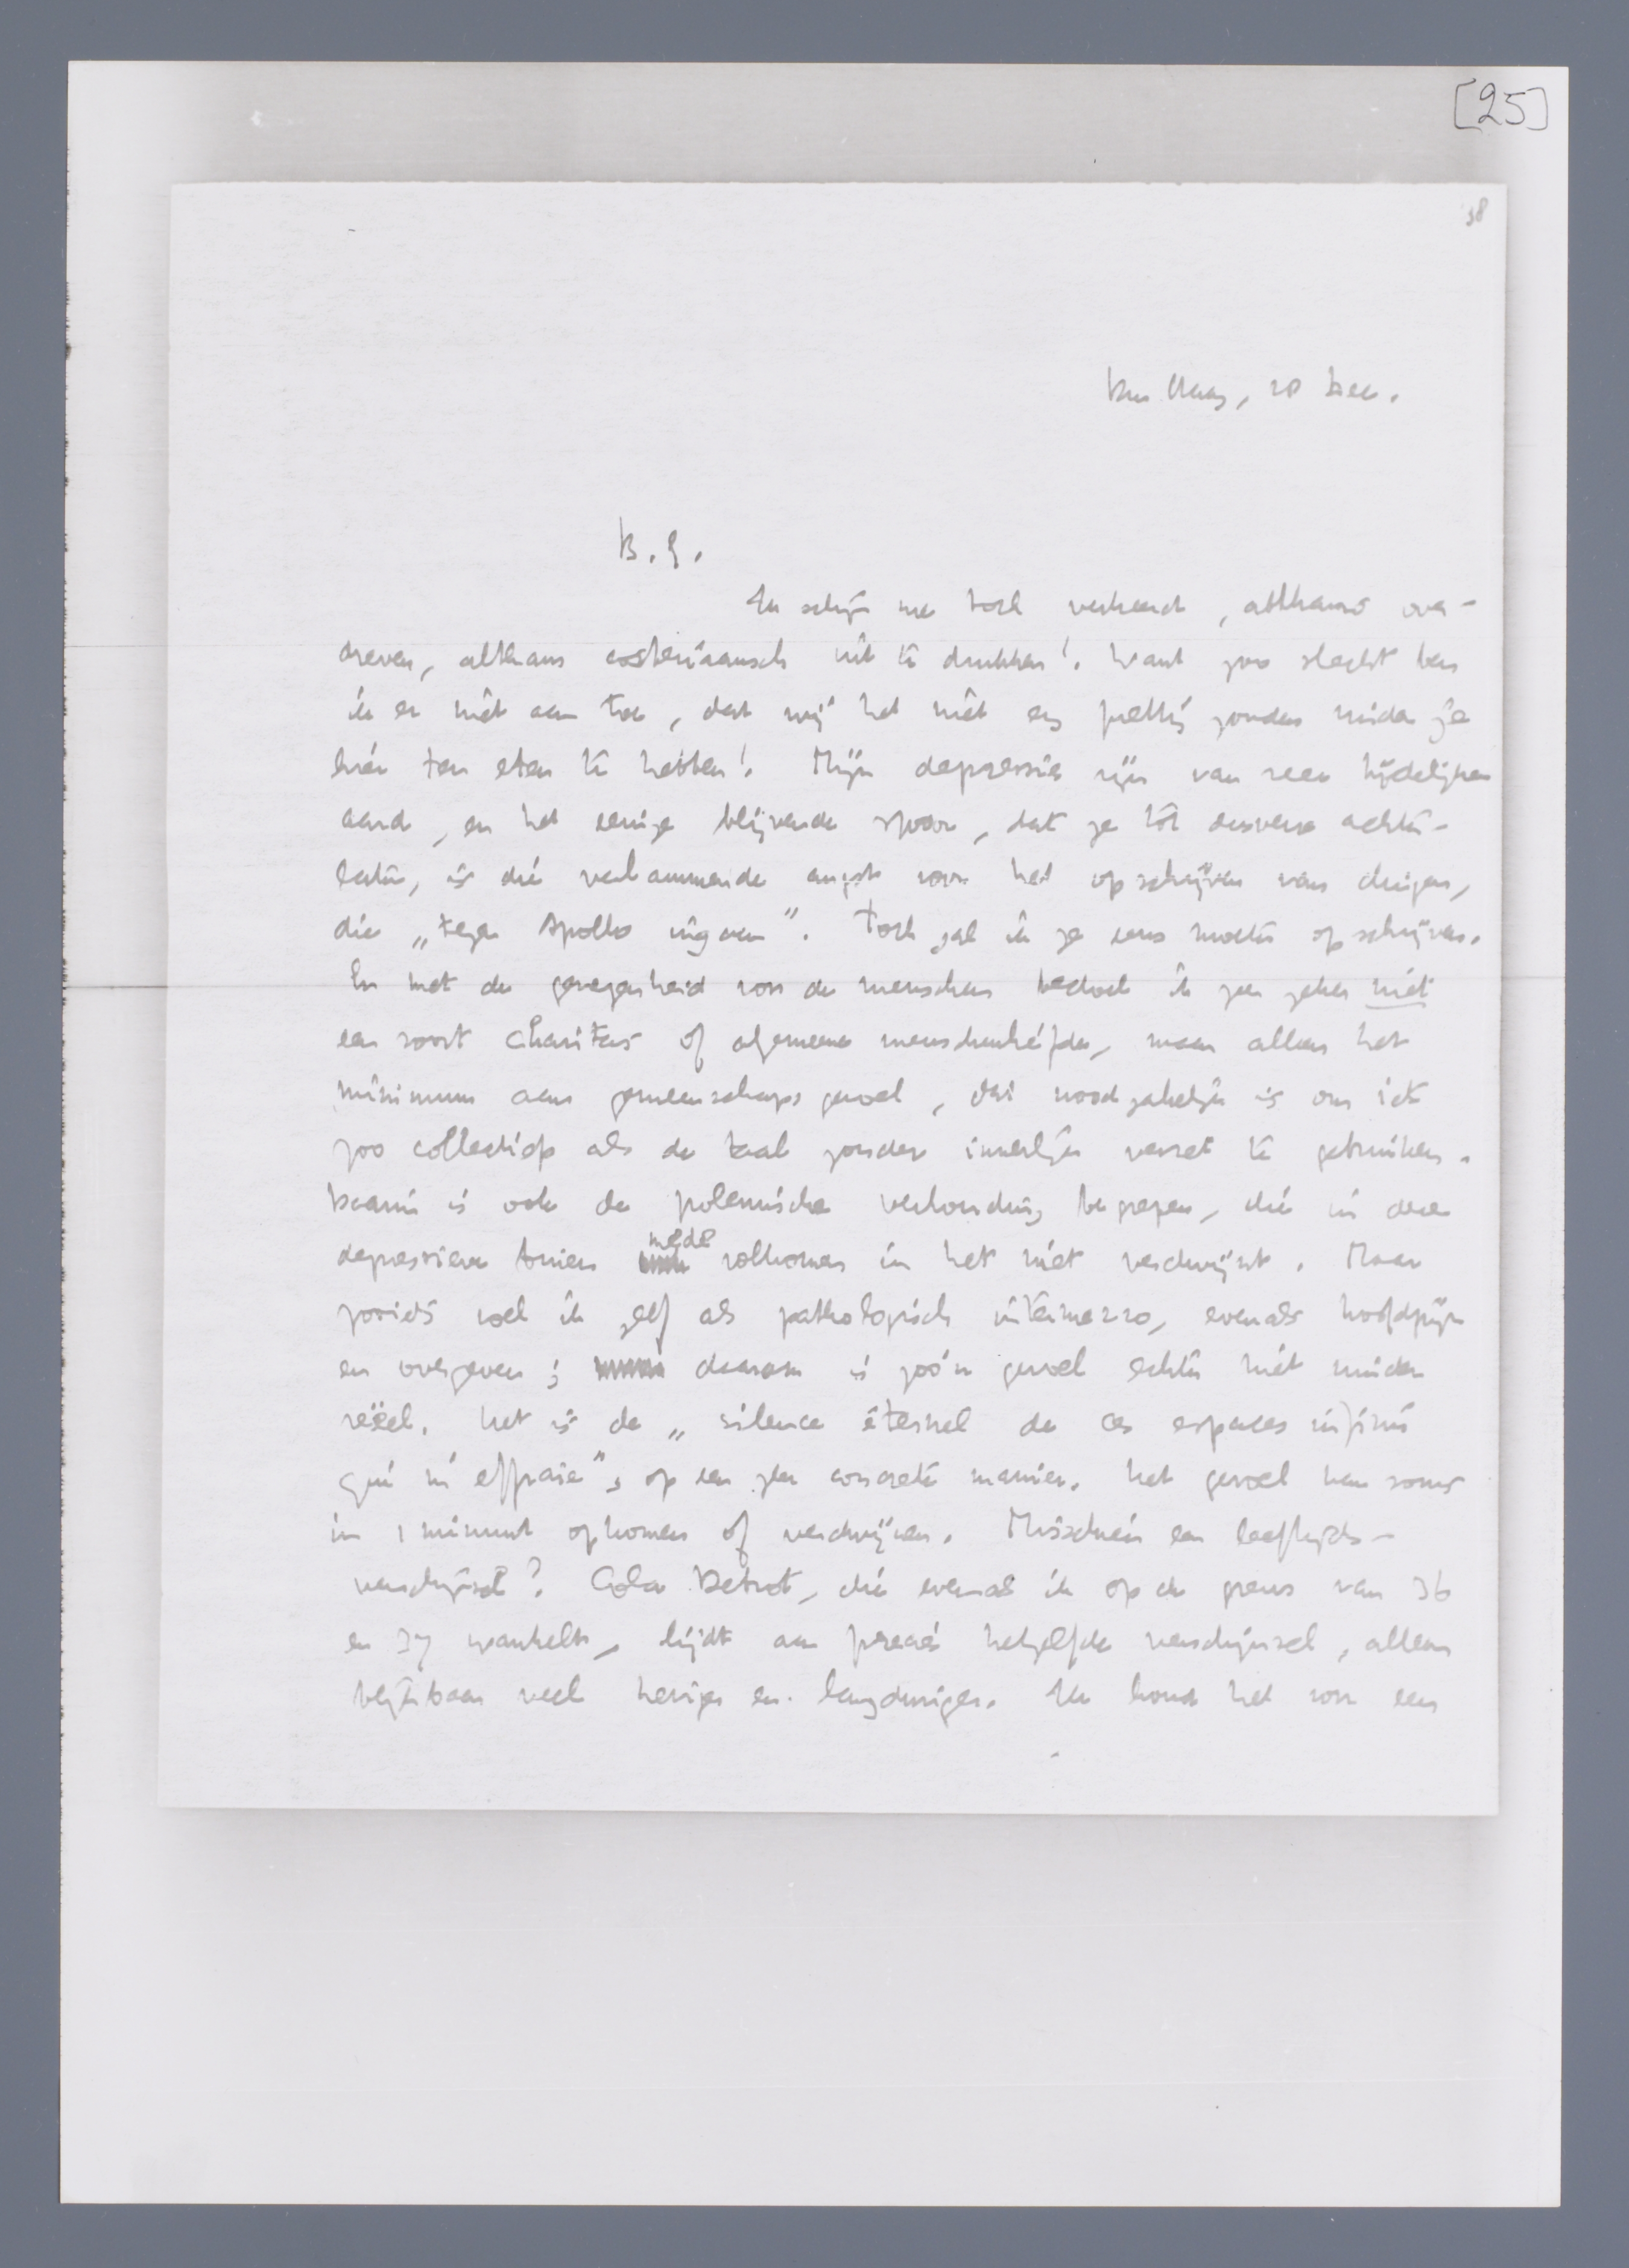 [25]
38
Den Haag, 28 Dec.
B.G.
Ik schijn me toch verkeerd, althans over-
dreven, althans costeriaansch uit te drukken! Want zoo slecht ben
ik er niet aan toe, dat wij het niet erg prettig zouden vinden je
hier ten eten te hebben! Mijn depressies zijn van zeer tijdelijken
aard, en het eenige blijvende spoor, dat ze tot dusverre achter-
laten, is die verlammende angst voor het opschrijven van dingen,
die „tegen Apollo ingaan". Toch zal ik ze eens moeten opschrijven.
En met de genegenheid voor de menschen bedoel ik zeer zeker niet
een soort charitas of algemeene menschenliefde, maar alleen het
minimum aan gemeenschapsgevoel, dat noodzakelijk is om iets
zoo collectiefs als de taal zonder innerlijk verzet te gebruiken.
Daarin is ook de polemische verhouding begrepen, die in deze
depressieve buien mede volkomen in het niet verdwijnt. Maar
zooiets voel ik zelf als pathologisch intermezzo, evenals hoofdpijn
en overgeven; daarom is zoo'n gevoel echter niet minder
reëel. Het is de „silence éternel de ces espaces infinis
qui m'effraie", op een zeer concrete manier. Het gevoel kan soms
in 1 minuut opkomen of verdwijnen. Misschien een leeftijds-
verschijnsel? Cola Debrot, die evenals ik op de grens van 36
en 37 wankelt, lijdt aan precies hetzelfde verschijnsel, alleen
blijkbaar veel heviger en langduriger. Ik houd het voor een